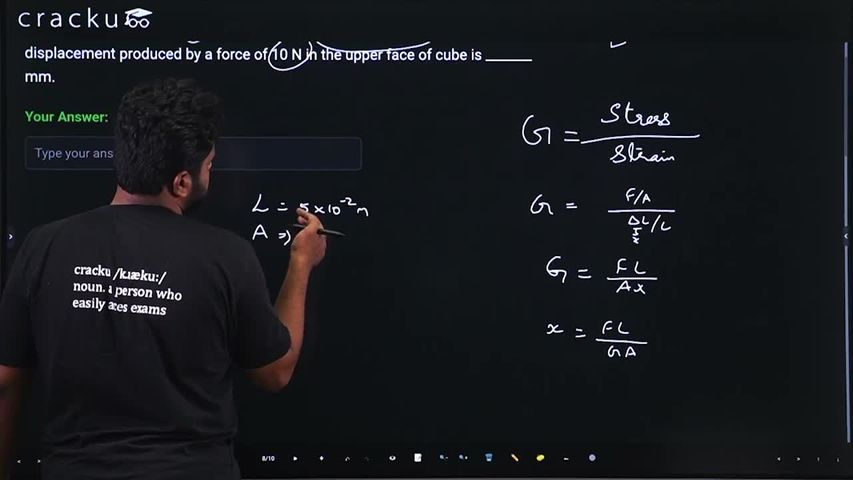 cracku
displacement produced by a force of 10 N in the upper face of cube is ______
mm.
Your Answer:
Type your ans
L = 5 x 10⁻² m
A ⇒
G = Stress / Strain
G = F/A / ΔL/L
x
G = FL / Ax
x = FL / GA
cracku /kɹæku:/
noun. a person who
easily aces exams
8/10